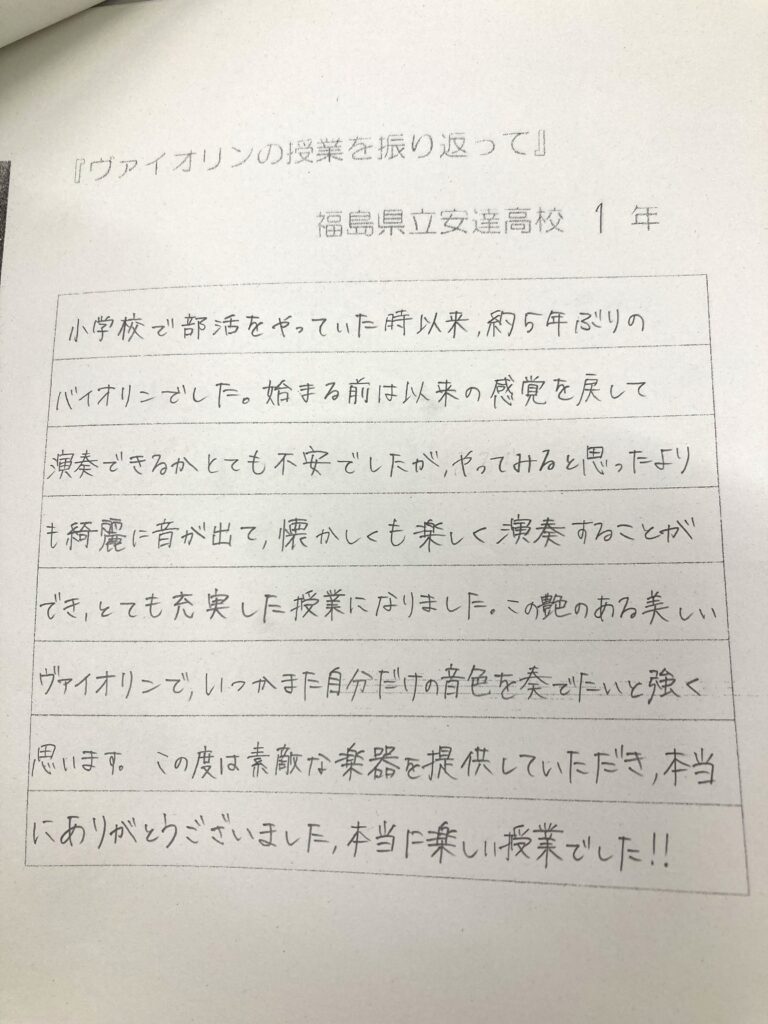 『ヴァイオリンの授業を振り返って』
福島県立安達高校 1 年
小学校で部活をやっていた時以来,約5年ぶりの
バイオリンでした。始まる前は以来の感覚を戻して
演奏できるかとても不安でしたが,やってみると思ったより
も綺麗に音が出て,懐かしくも楽しく演奏することが
でき,とても充実した授業になりました。この艶のある美しい
ヴァイオリンで,いつかまた自分だけの音色を奏でたいと強く
思います。この度は素敵な楽器を提供していただき,本当
にありがとうございました,本当に楽しい授業でした!!